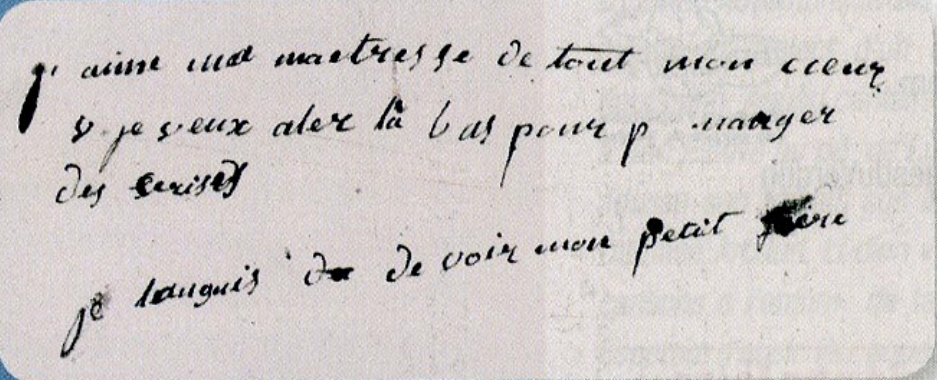 j'aime ma maetresse de tout mon cieur
v je veux aler là bas pour p manger
des serises
je languis de de voir mon petit frère